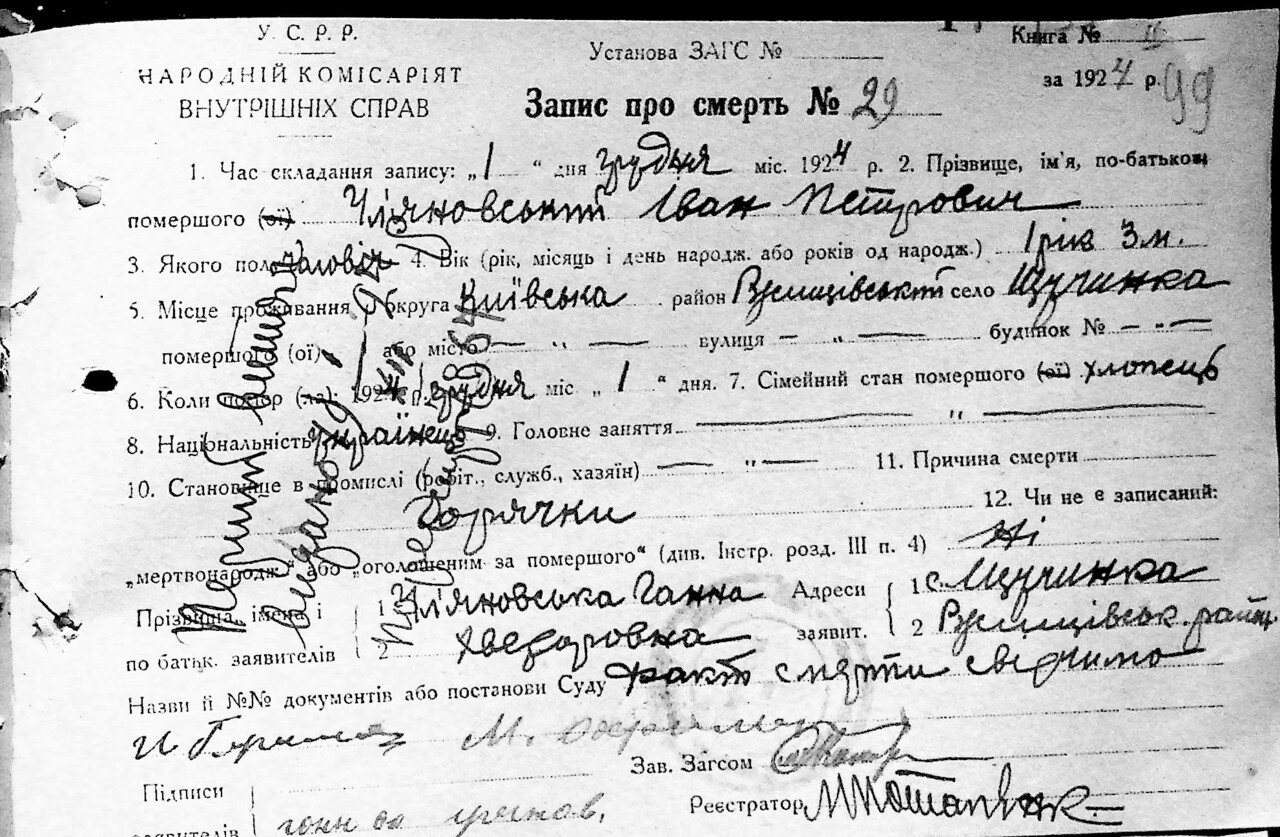 У. С. Р. Р.
НАРОДНІЙ КОМІСАРІЯТ
ВНУТРІШНІХ СПРАВ
Установа ЗАГС №
Книга № II
за 1924 р. 99
Запис про смерть № 29
1. Час складання запису: „1“ дня грудня міс. 1924 р. 2. Прізвище, ім'я, по-батькові
помершого (ої) Улʼяновський Іван Петрович
3. Якого полу чаловіч. 4. Вік (рік, місяць і день народж. або років од народж.) 1 рік 3 м.
5. Місце проживання округа Київська район Ржищівський село Щучинка
помершого (ої) або місто — „ — вулиця — „ — будинок № — „ —
6. Коли помер (ла): 1924 р. грудня міс „1“ дня. 7. Сімейний стан помершого (ої) хлопець
8. Національність Українець 9. Головне заняття — „ —
10. Становище в промислі (робіт., служб., хазяїн) — „ — 11. Причина смерти
Горячки 12. Чи не є записаний:
„мертвонародж.“ або „оголошеним за помершого“ (див. Інстр. розд. III п. 4) Ні
Прізвища, імена і 1 Улʼяновська Ганна Адреси 1 с. Щучинка
по батьк. заявителів 2 Хведоровна заявит. 2 Ржищівськ. району
Назви й №№ документів або постанови Суду Факт смерти свідчимо
Зав. Загсом
Підписи Реєстратор
заявителів